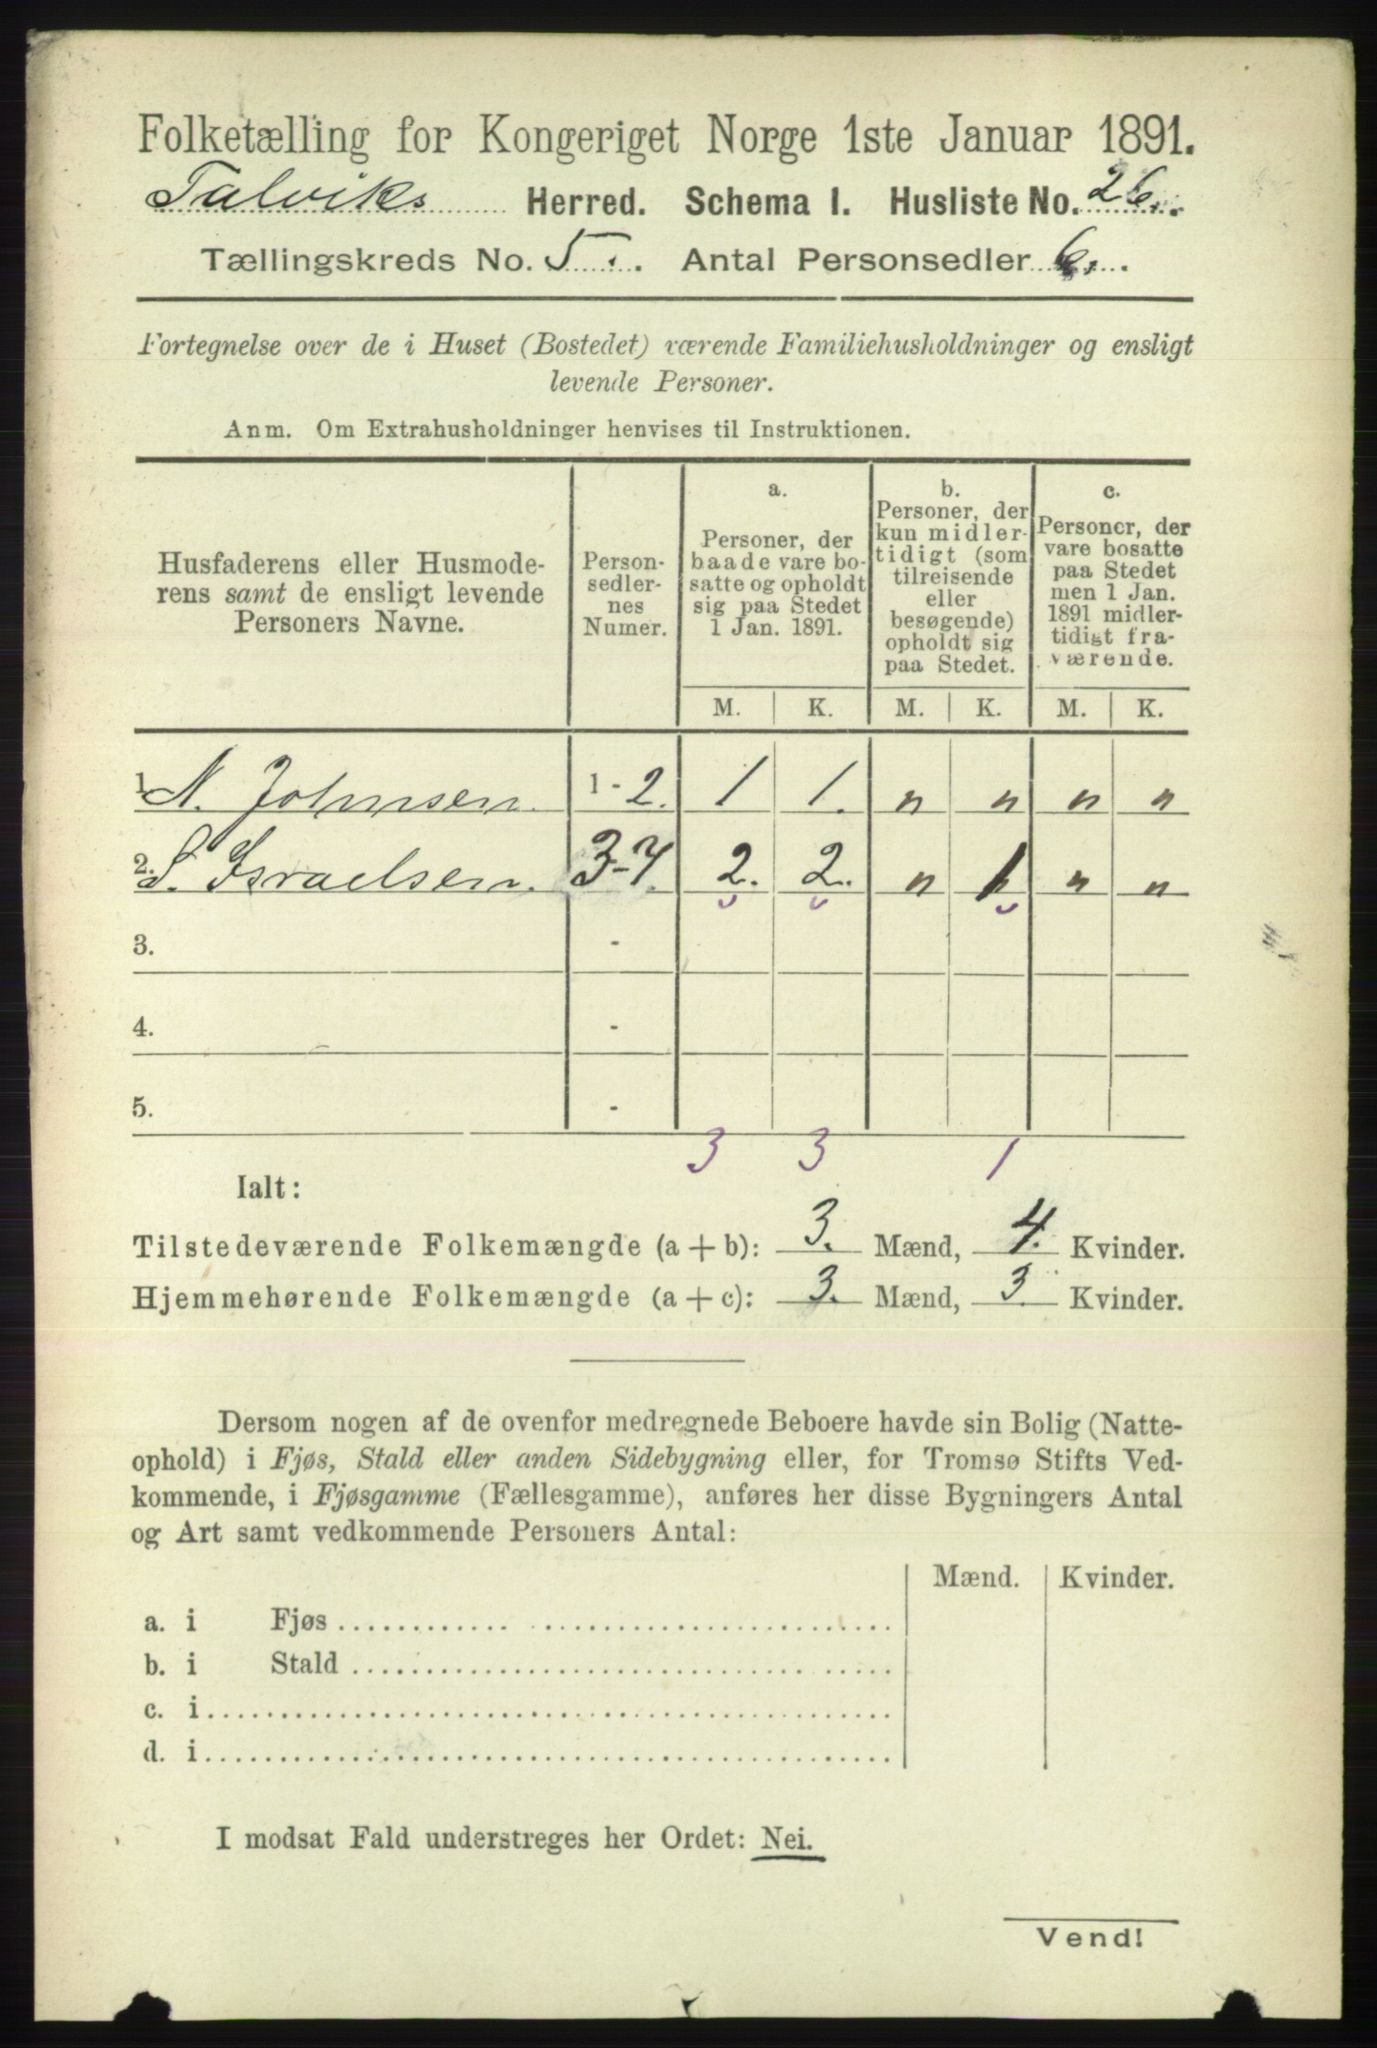 Folketælling for Kongeriget Norge 1ste Januar 1891.
Talviks Herred. Schema I. Husliste No. 26.
Tællingskreds No. 5. Antal Personsedler 6.
Fortegnelse over de i Huset (Bostedet) værende Familiehusholdninger og ensligt
levende Personer.
Anm. Om Extrahusholdninger henvises til Instruktionen.
Husfaderens eller Husmode-
rens samt de ensligt levende
Personers Navne.
Person-
sedler-
nes
Numer.
a.
Personer, der
baade vare bo-
satte og opholdt
sig paa Stedet
1 Jan. 1891.
b.
Personer, der
kun midler-
tidigt (som
tilreisende
eller
besøgende)
opholdt sig
paa Stedet.
c.
Personer, der
vare bosatte
paa Stedet
men 1 Jan.
1891 midler-
tidigt fra-
værende.
M. K. M. K. M. K.
1. N. Johnsen. 1-2. 1 1. " " " "
2. S. Israelsen. 3-7. 2. 2. " 1 " "
3. -
4. -
5. -
3 3 1
Ialt:
Tilstedeværende Folkemængde (a+b): 3. Mænd, 4. Kvinder.
Hjemmehørende Folkemængde (a+c): 3. Mænd, 3. Kvinder.
Dersom nogen af de ovenfor medregnede Beboere havde sin Bolig (Natte-
ophold) i Fjøs, Stald eller anden Sidebygning eller, for Tromsø Stifts Ved-
kommende, i Fjøsgamme (Fællesgamme), anføres her disse Bygningers Antal
og Art samt vedkommende Personers Antal:
Mænd. Kvinder.
a. i Fjøs
b. i Stald
c. i
d. i
I modsat Fald understreges her Ordet: Nei.
Vend!